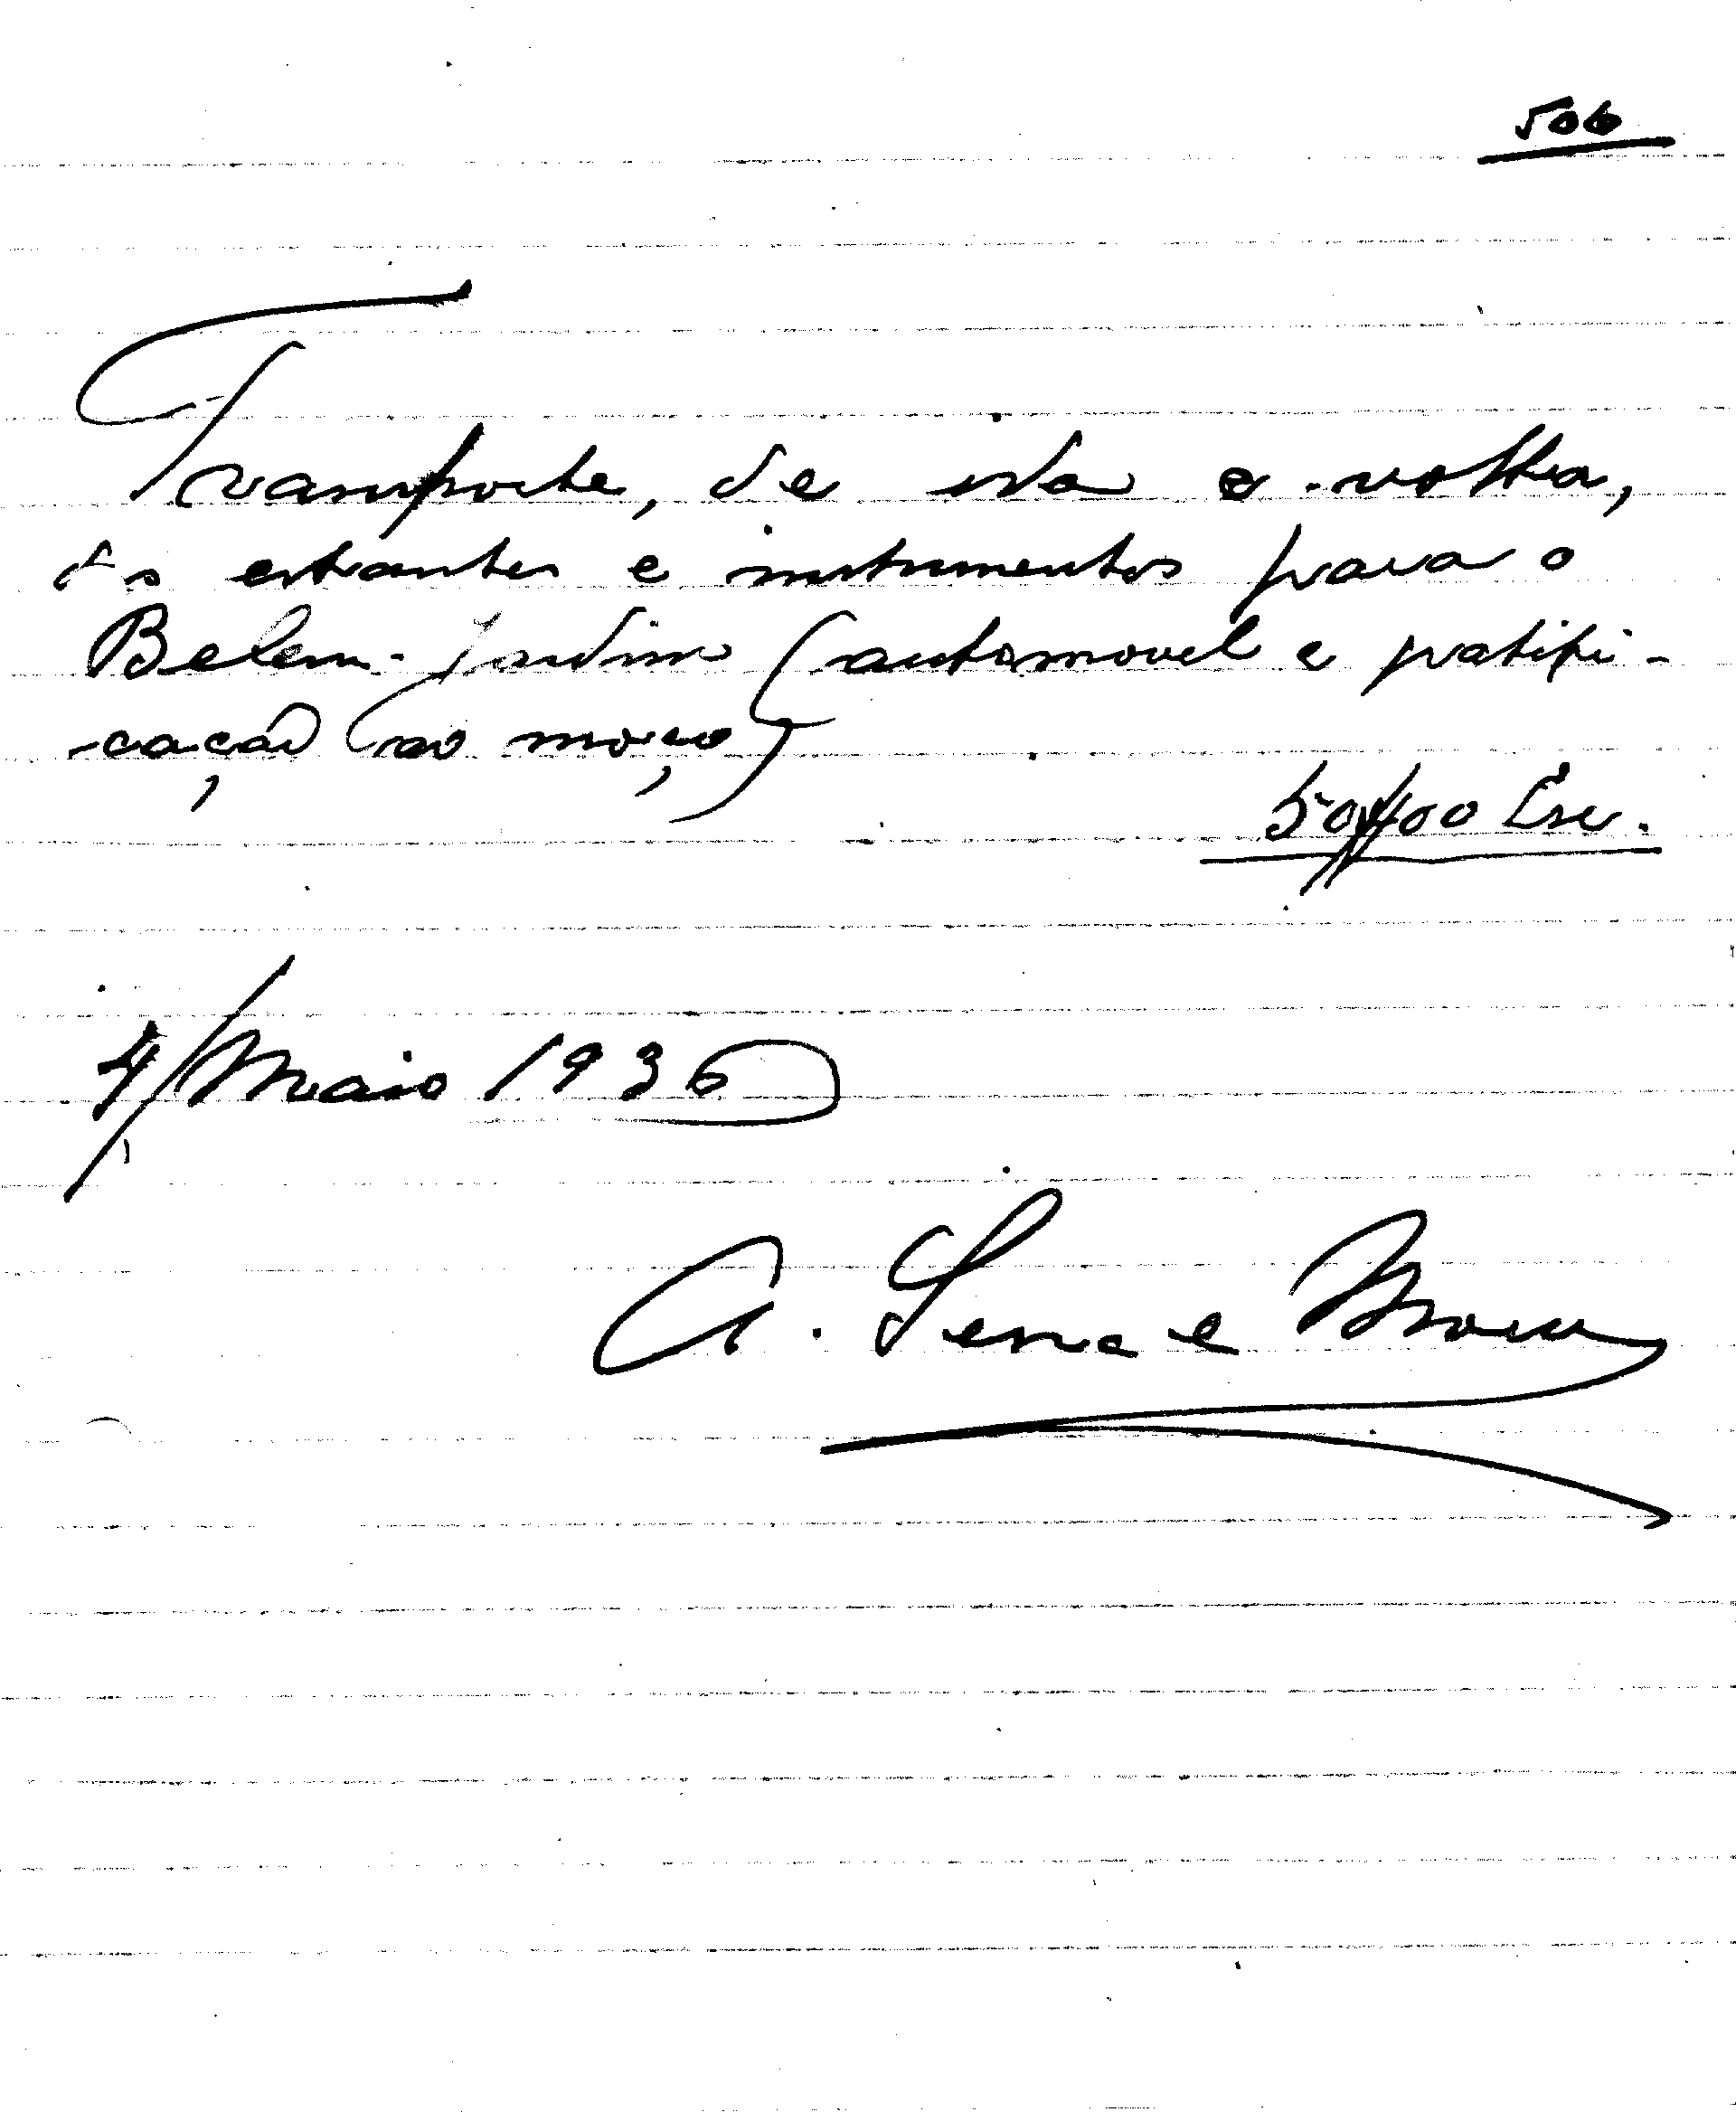 506
Transporte, de ida e volta,
das estantes e instrumentos para o
Belem-Jardim (automovel e gratifi-
-cação ao moço)
50$00 Esc.
4/Maio 1936
A.